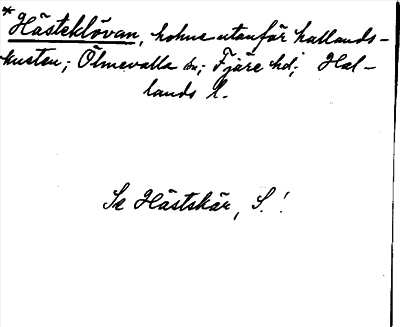 *Hästeklövan, holme utanför hallands-
kusten; Ölmevalla sn; Fjäre hd; Hal-
lands l.
Se Hästskär, S.!